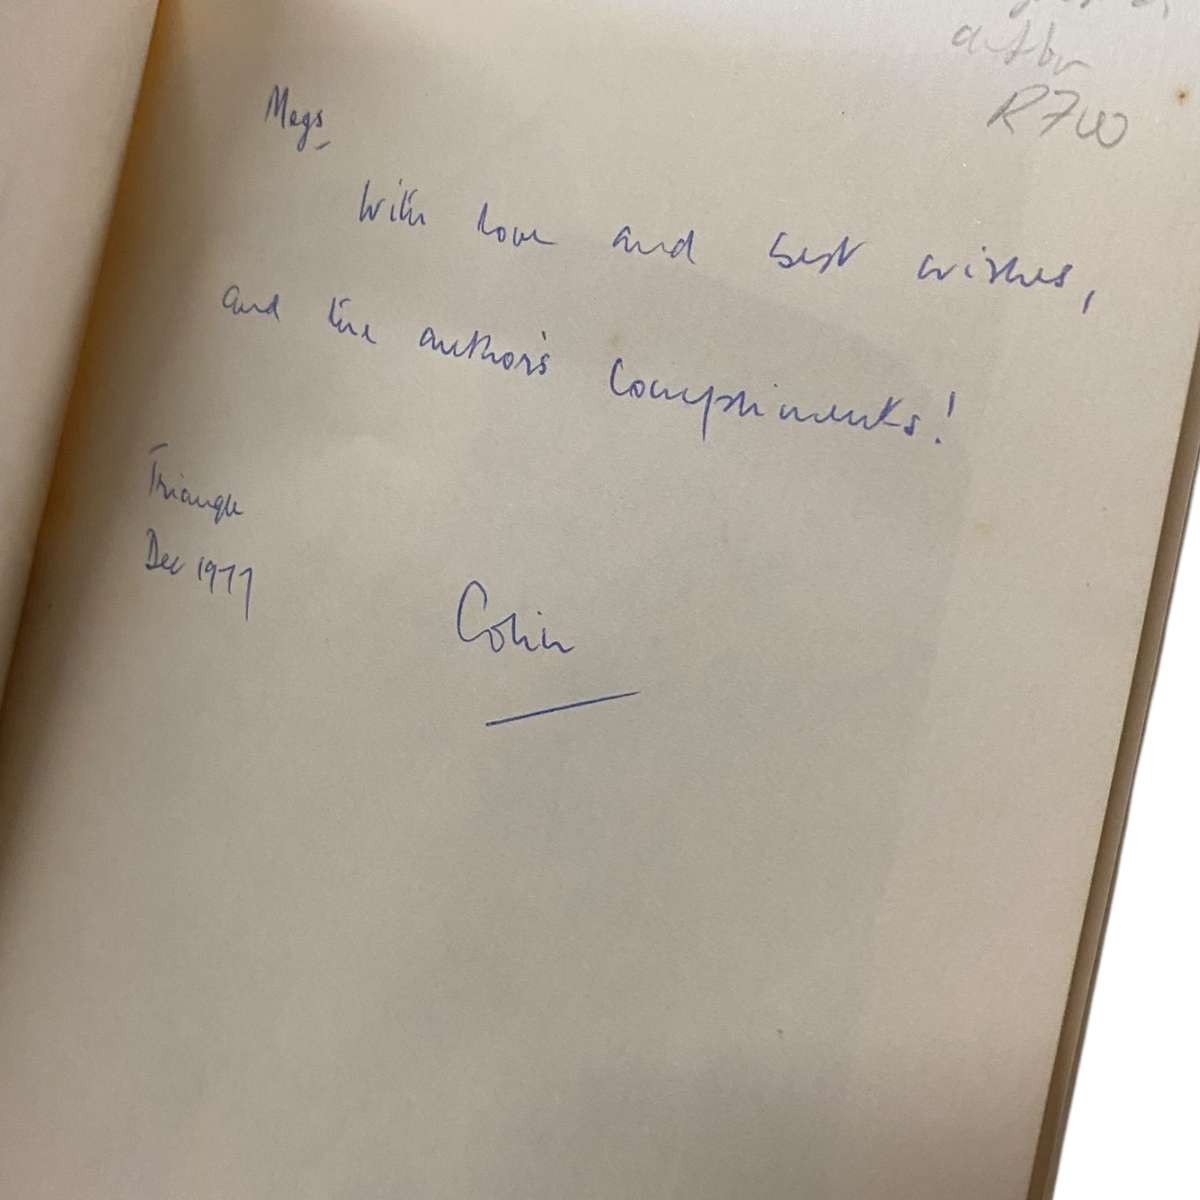 author
R700
Megs,
With love and best wishes,
and the author's compliments!
Triangle
Dec 1977
Colin